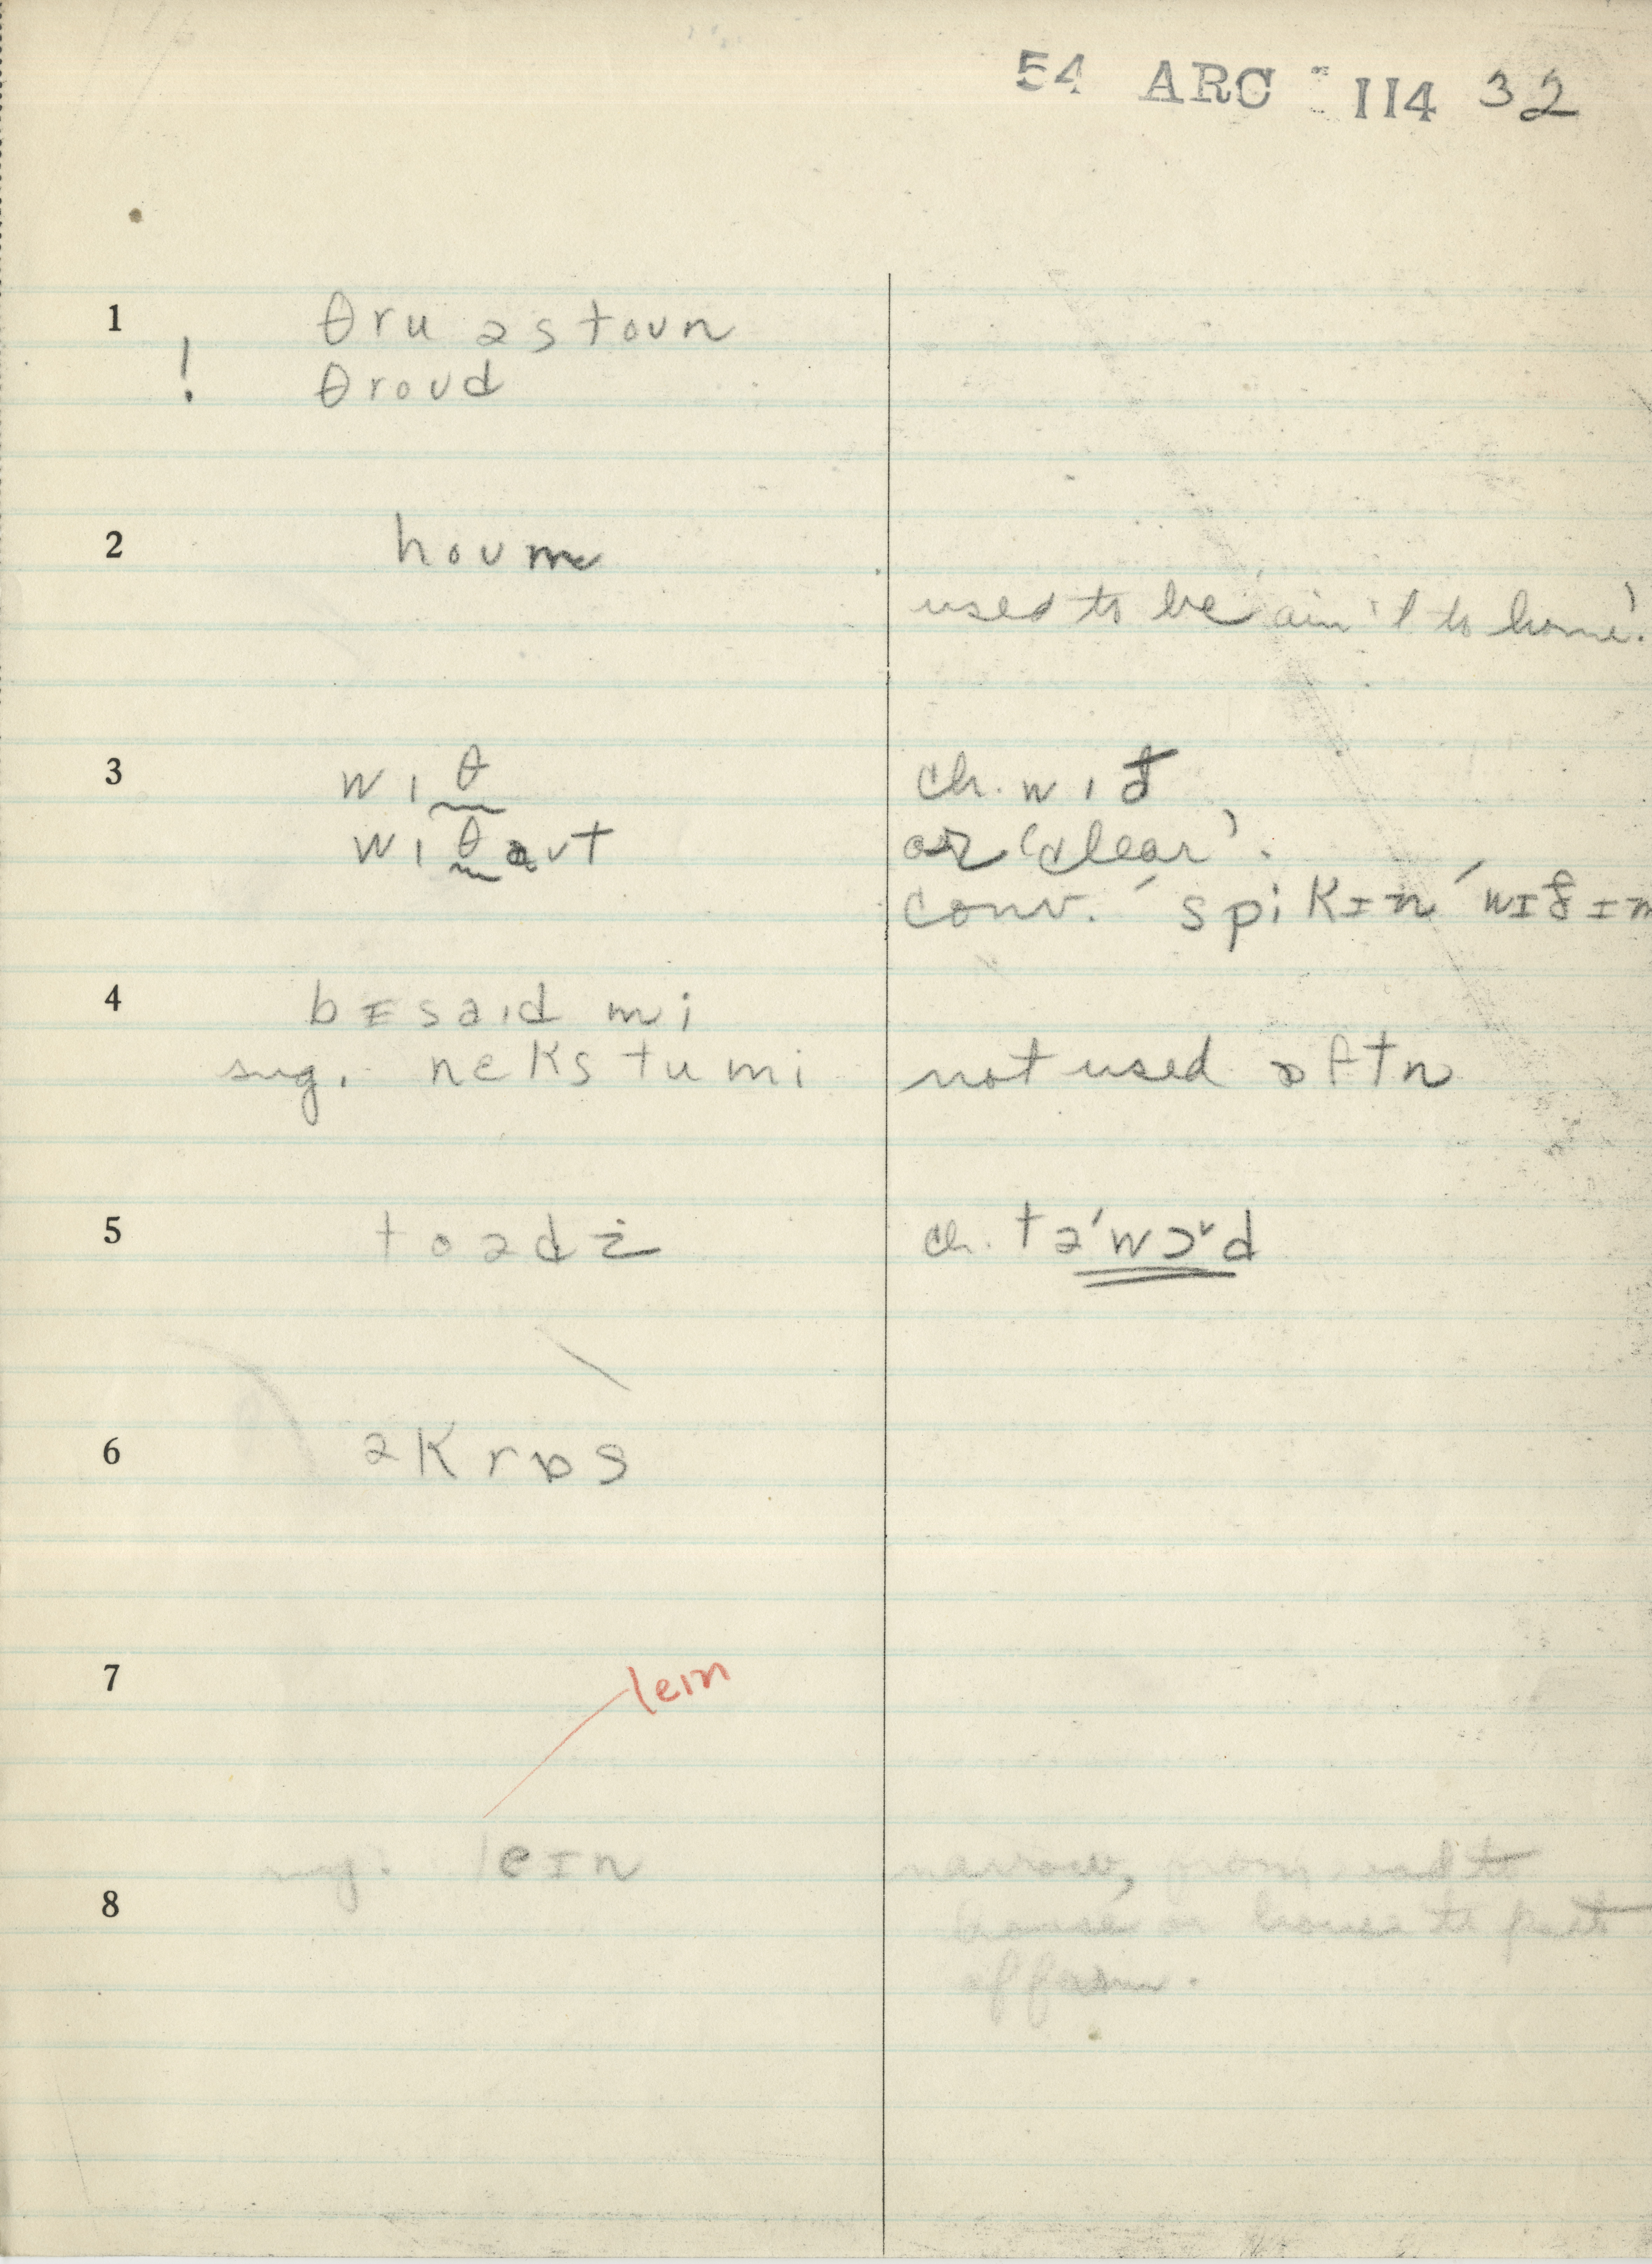 54 ARC 114 32
1 θru əstoun
! θroud
2 houm
used to be 'ain't to home'.
3 wɪθ ch. wɪð
wɪθaut or 'clear'.
conv. ˊspikɪn ˊwɪðɪm
4 bɪsaɪd mi
sug. nekstumi not used ɒftn
5 ch. təˈwɔɚd
6 əkrɒs
7 leɪn
sug. leɪn narrow, from road to
8 house or house to part
of farm.